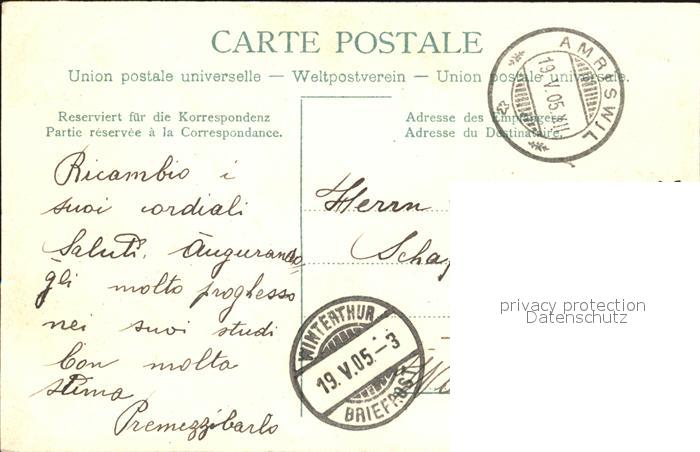 CARTE POSTALE
Union postale universelle — Weltpostverein — Union postale universale.
Reserviert für die Korrespondenz
Partie réservée à la Correspondance.
Adresse des Empfängers
Adresse du Destinataire.
AMRISWIL
19.V.05.XII
Ricambio i
suoi cordiali
Saluti. Augurando
gli molto proghesso
nei suoi studi
Con molta
stima
Premezzibarlo
Herrn
Schay
WINTERTHUR
19.V.05.-3
BRIEFPOST
privacy protection
Datenschutz